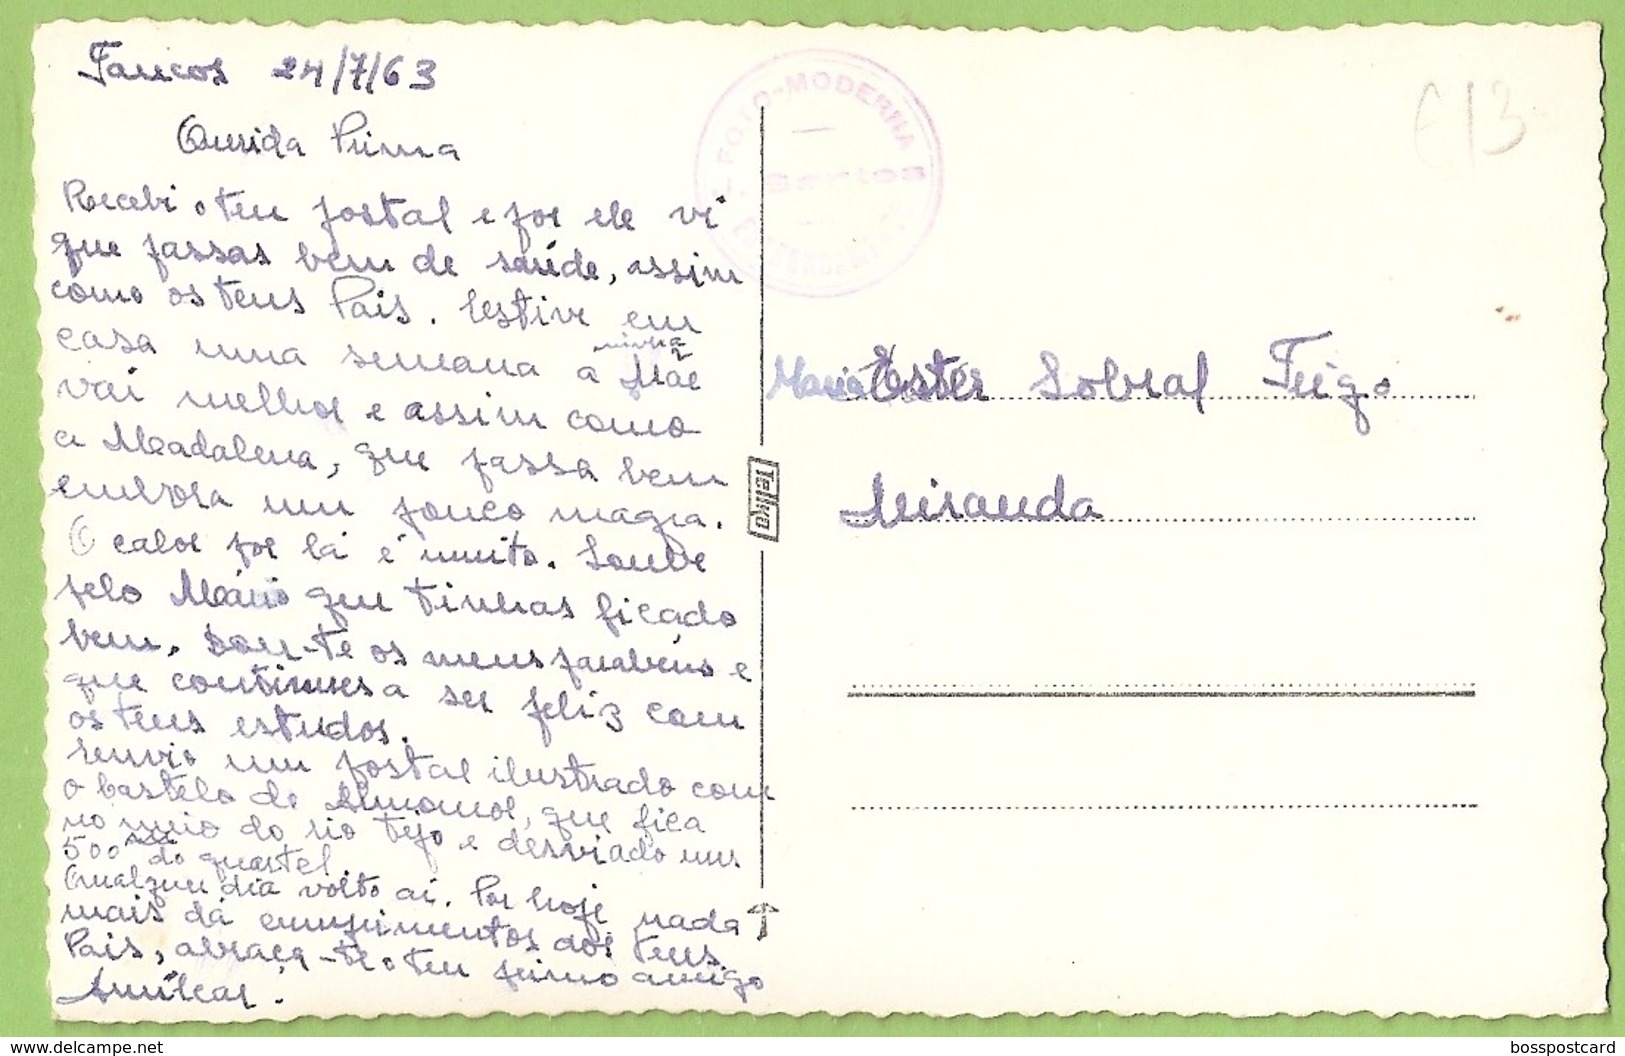 Tancos 24/7/63
Querida Prima
Recebi o teu postal e por ele vi
que passas bem de saúde, assim
como os teus Pais. Estive em
casa uma semana a minha Mãe
vai melhor e assim como
a Madalena, que passa bem
embora um pouco magra.
O calor por lá é muito. Soube
pelo Mário que tinhas ficado
bem. Dou-te os meus parabéns e
que continues a ser feliz com
os teus estudos.
Envio um postal ilustrado com
o Castelo de Almourol, que fica
no meio do rio Tejo e desviado uns
500 do quartel.
Qualquer dia volto aí. Por hoje nada
mais dá cumprimentos aos teus
Pais, abraça-te o teu primo amigo
Amílcar.
FOTO-MODERNA
Telko
Maria Ester Sobral Trigo
Miranda
€13
bosspostcard
delcampe.net